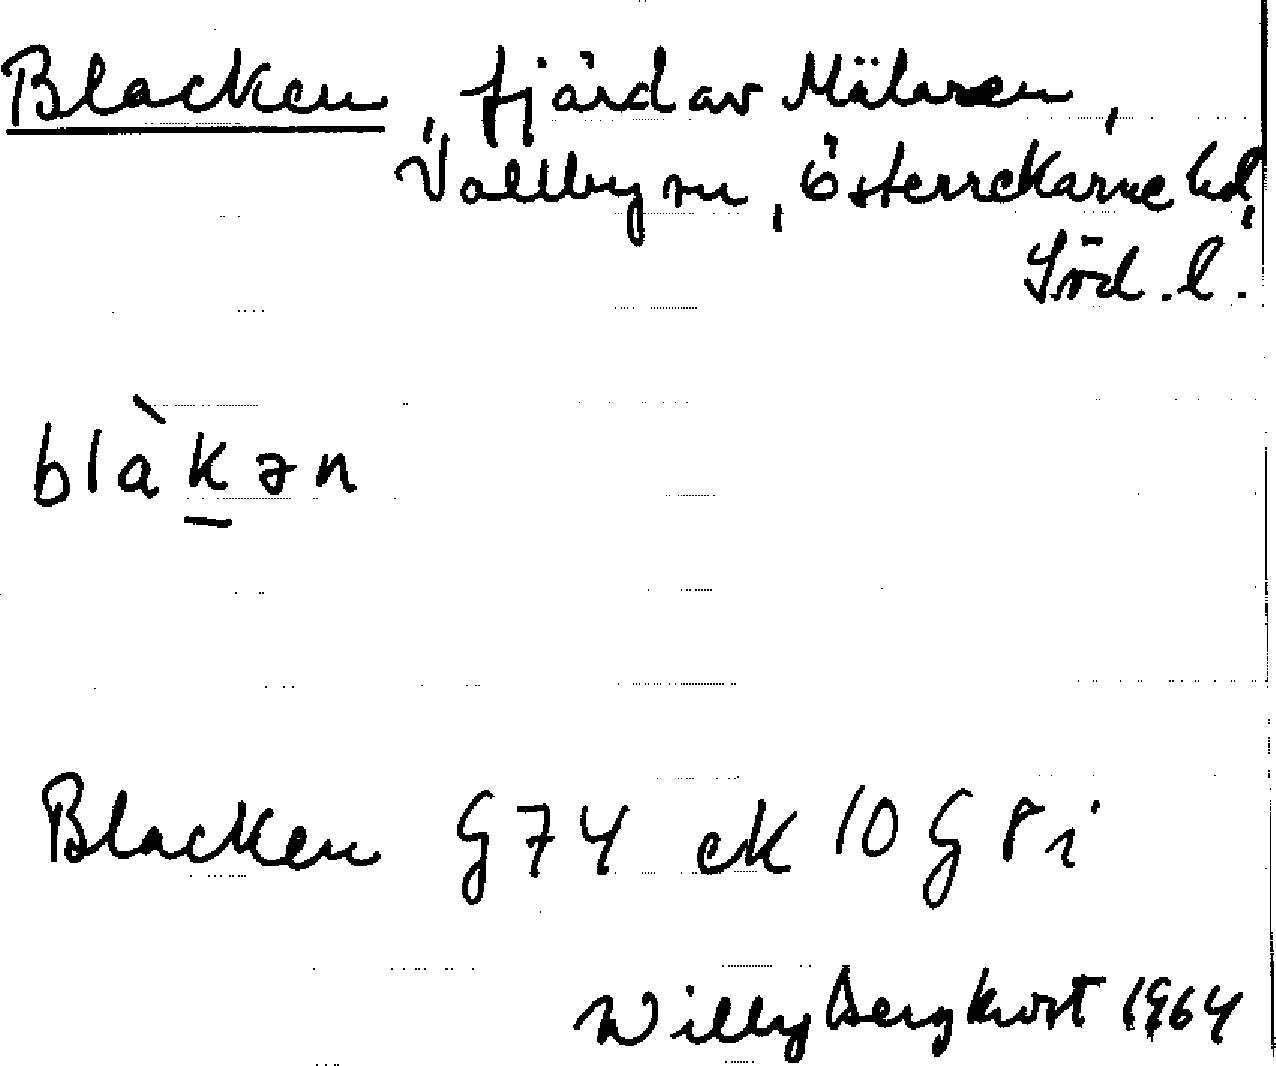 Blacken, fjärd av Mälaren,
Vallby sn, Österrekarne hd,
Söd. l.
blàkən
Blacken G74 ek 10 G 8 i
Willy Bergkvist 1964